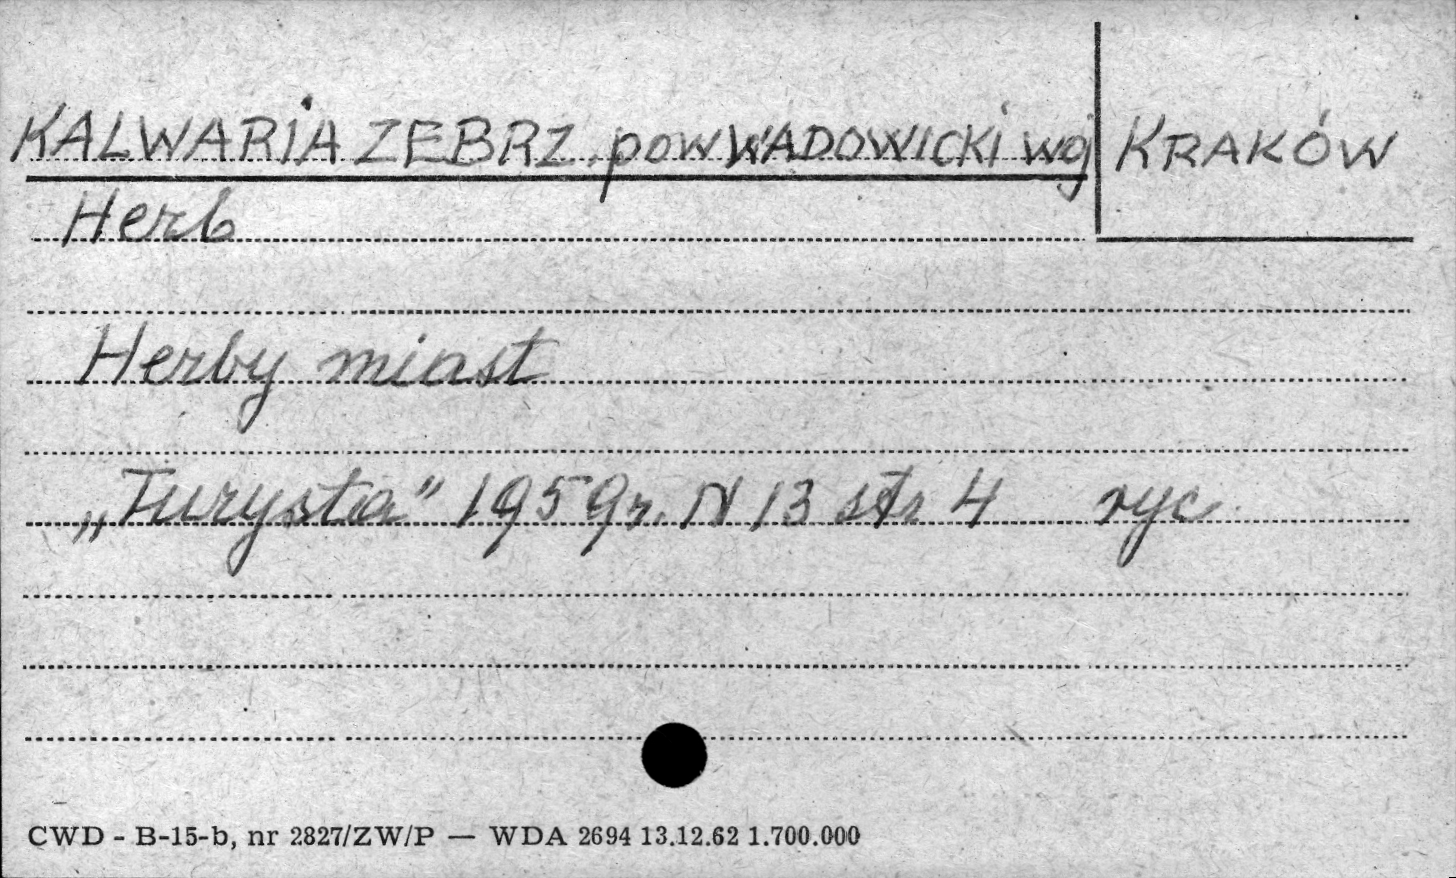 KALWARIA ZEBRZ. pow WADOWICKI woj KRAKÓW
Herb
Herby miast
„Turysta" 1959r. N 13 str 4 ryc
CWD - B-15-b, nr 2827/ZW/P — WDA 2694 13.12.62 1.700.000